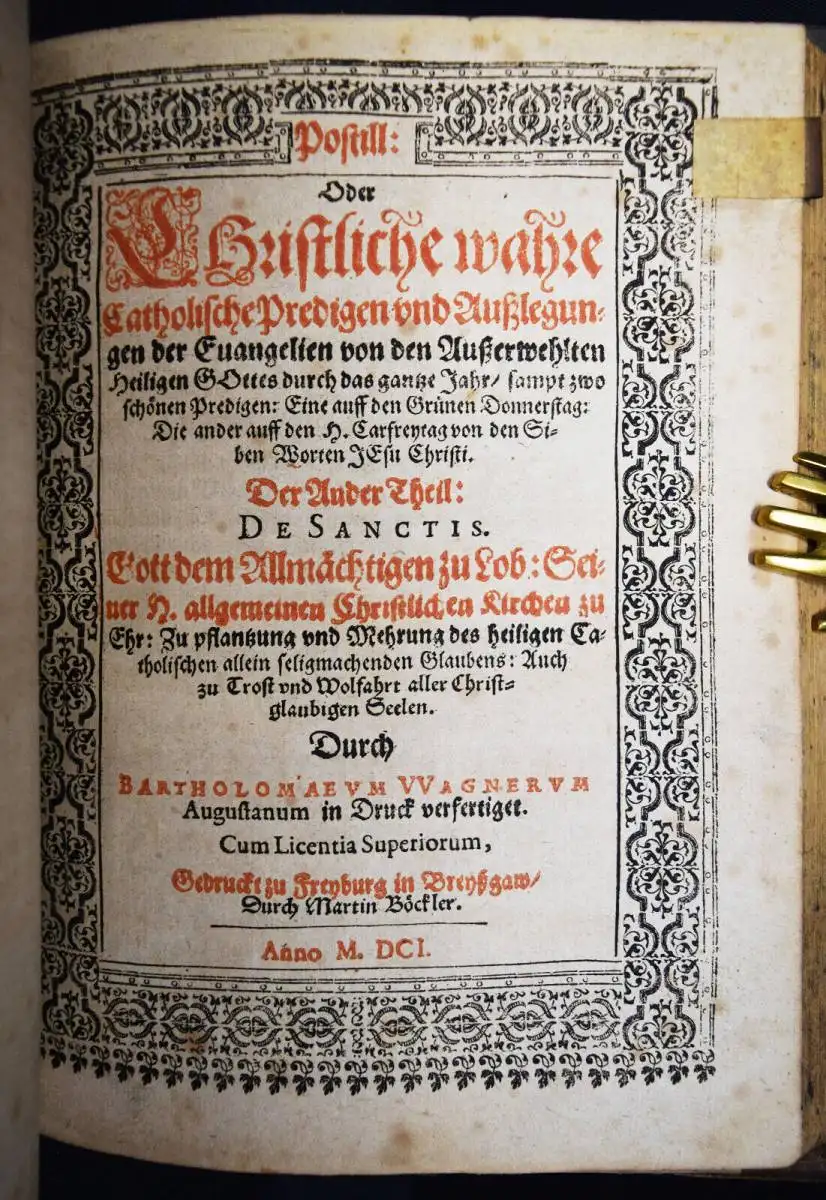 Postill:
Oder
CHristliche wahre
Catholische Predigen vnd Außlegun-
gen der Euangelien von den Außerwehlten
Heiligen GOttes durch das gantze Jahr/ sampt zwo
schönen Predigen: Eine auff den Grünen Donnerstag:
Die ander auff den H. Carfreytag von den Si-
ben Worten JEsu Christi.
Der Ander Theil:
DE SANCTIS.
Gott dem Allmächtigen zu Lob: Sei-
ner H. allgemeinen Christlichen Kirchen zu
Ehr: Zu pflantzung vnd Mehrung des heiligen Ca-
tholischen allein seligmachenden Glaubens: Auch
zu Trost vnd Wolfahrt aller Christ-
glaubigen Seelen.
Durch
BARTHOLOMAEVM VVAGNERVM
Augustanum in Druck verfertiget.
Cum Licentia Superiorum,
Gedruckt zu Freyburg in Breyßgaw/
Durch Martin Böckler.
Anno M. DCI.